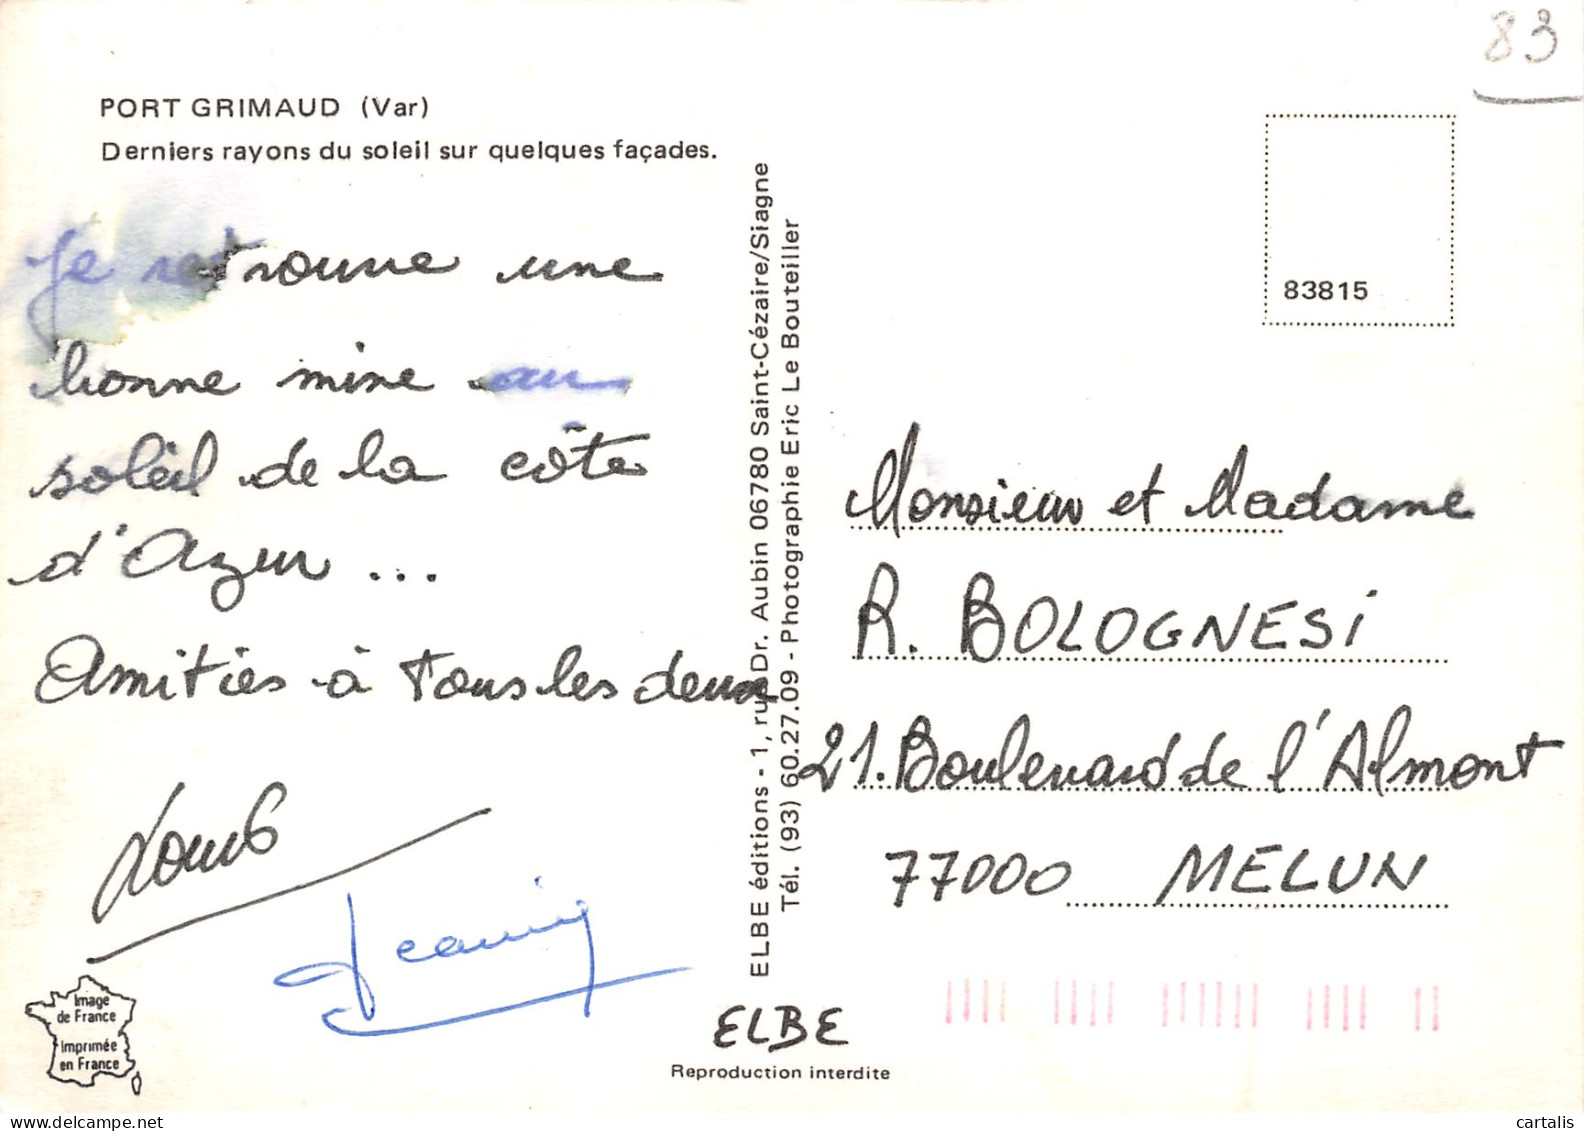 83
PORT GRIMAUD (Var)
Derniers rayons du soleil sur quelques façades.
Je retrouve une
bonne mine au
soleil de la côte
d'Azur ...
Amitiés à tous les deux
Louis
ELBE éditions - 1, rue Dr. Aubin 06780 Saint-Cézaire/Siagne
Tél. (93) 60.27.09 - Photographie Eric Le Bouteiller
83815
Monsieur et Madame
R. BOLOGNESi
21. Boulevard de l'Almont
77000 MELUN
Image
de France
Imprimée
en France
ELBE
Reproduction interdite
cartalis
www.delcampe.net